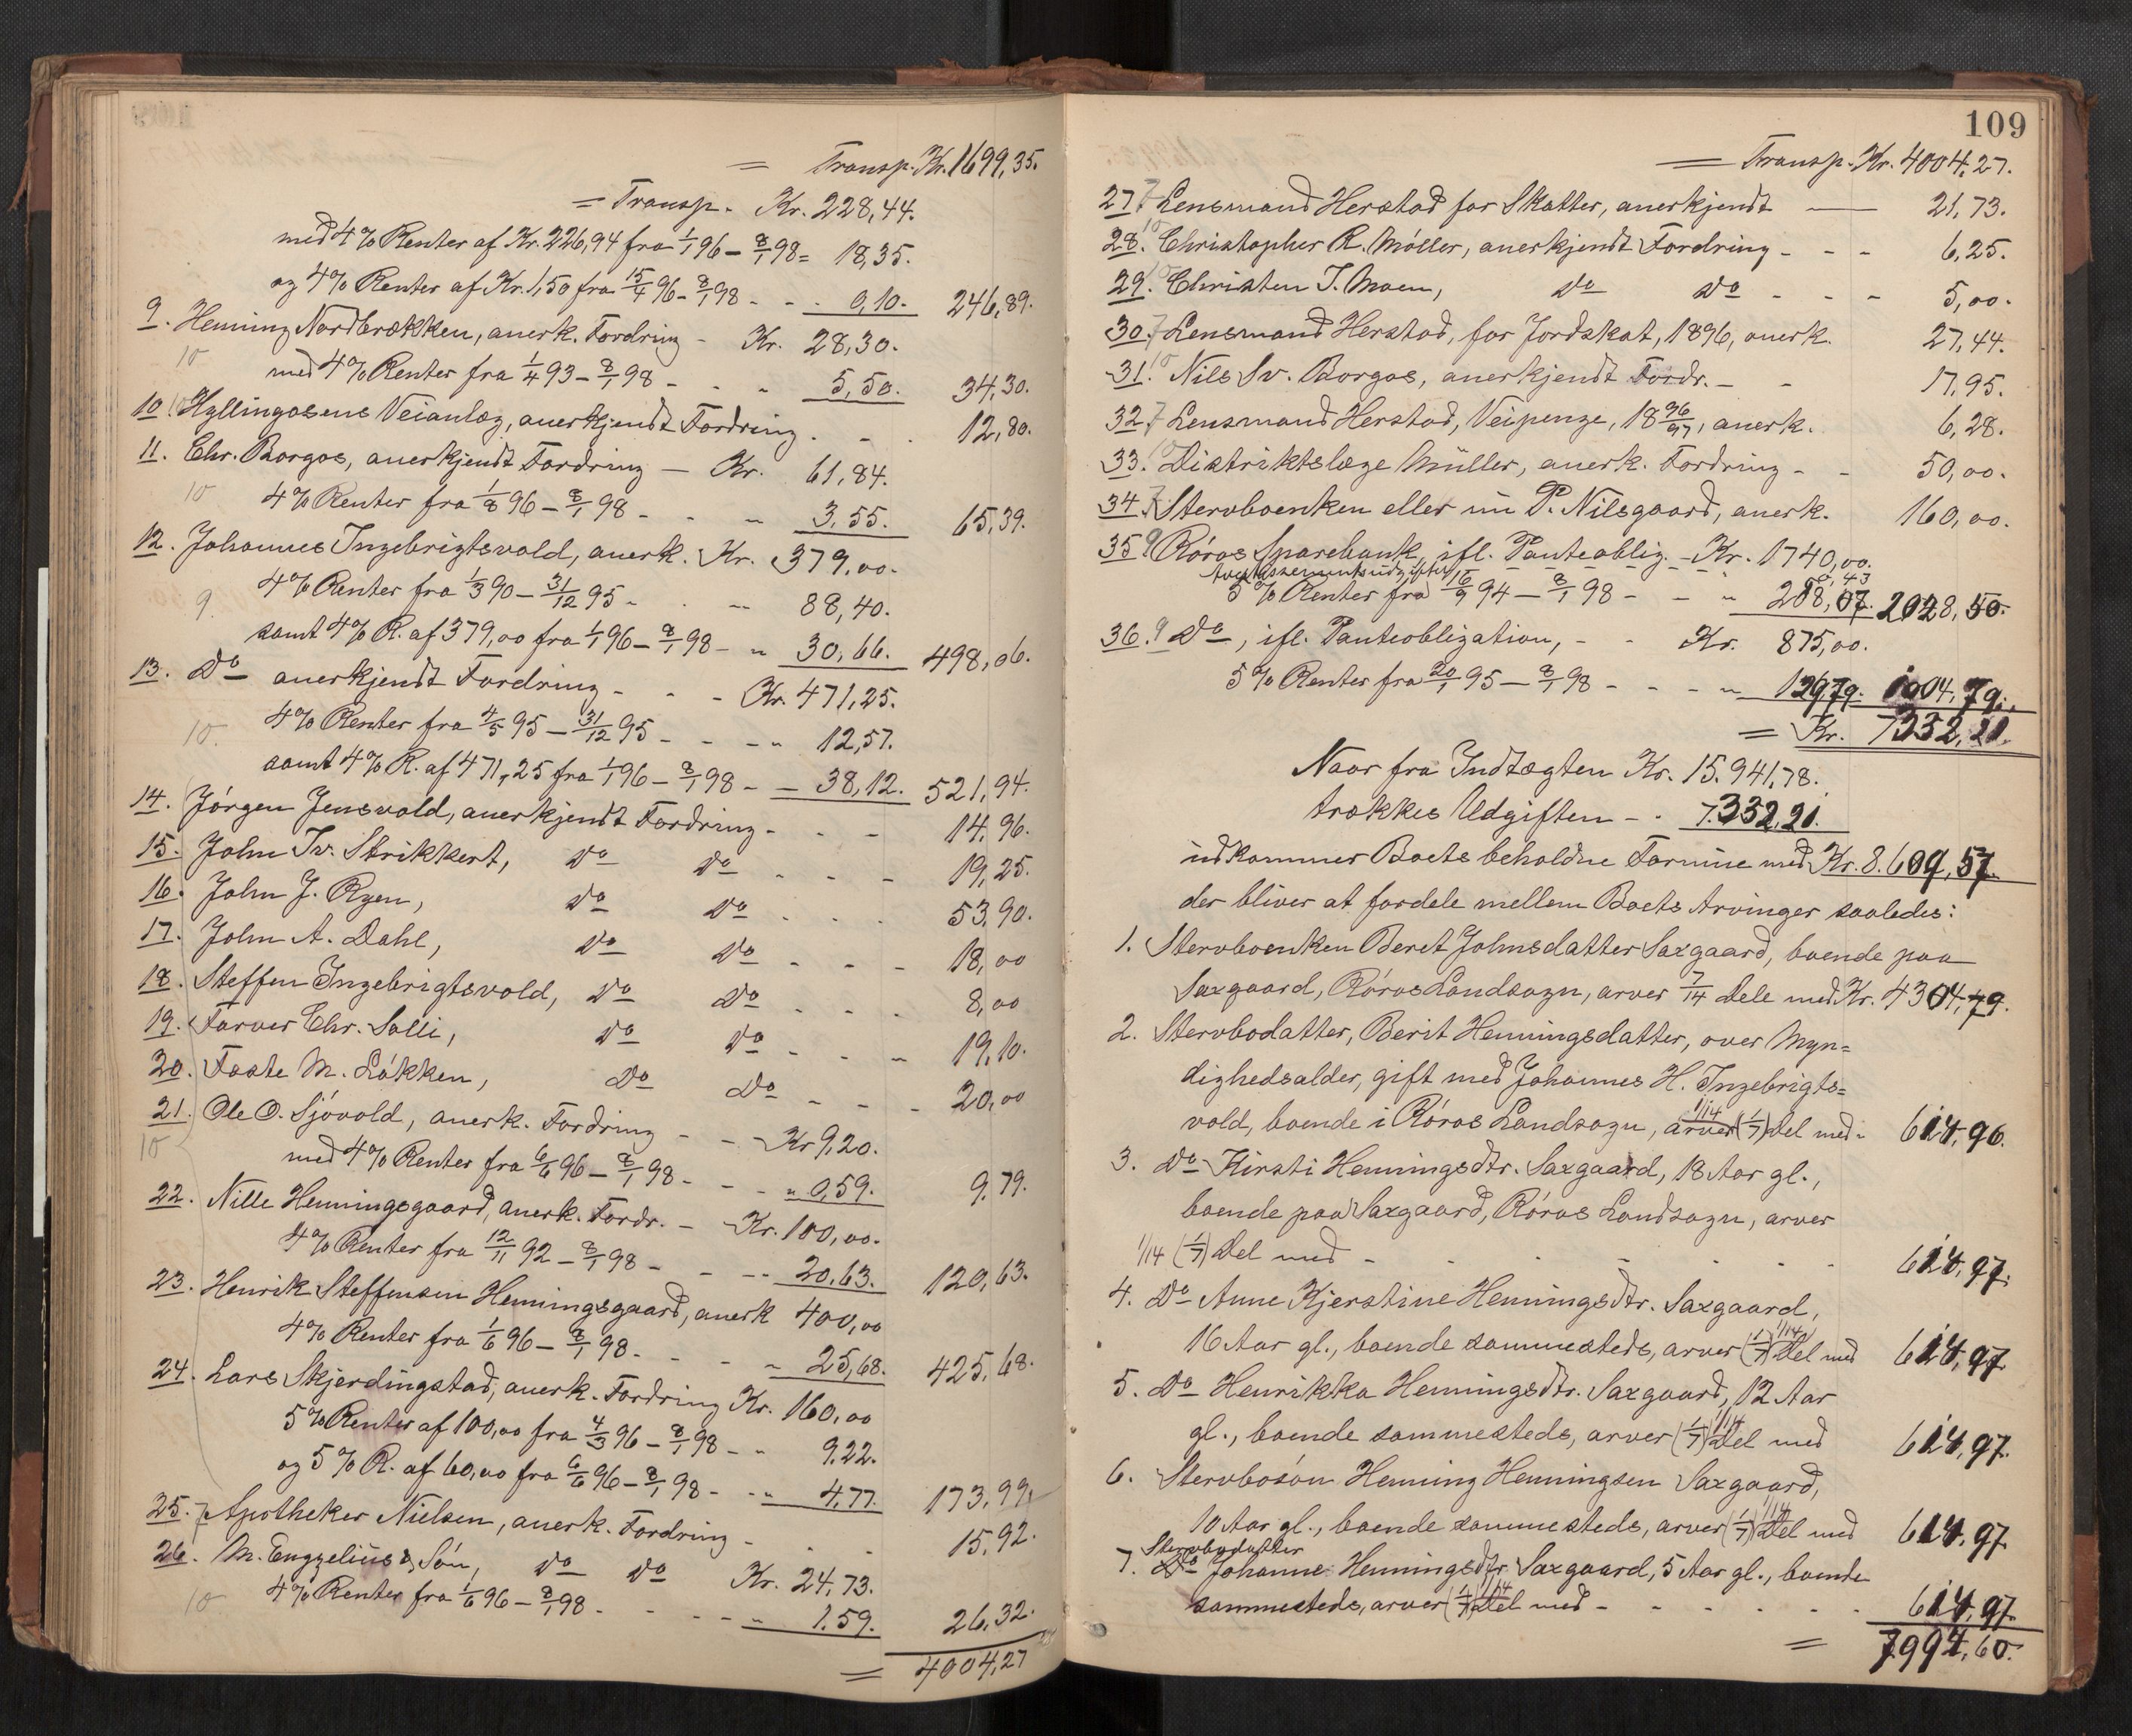 = Transp. Kr. 1699,35.
= Transp. Kr. 228,44.
med 4% Renter af Kr. 226,94 fra 1/1 96 – 8/1 98 = 18,35.
og 4% Renter af Kr. 1,50 fra 15/4 96 – 8/1 98 - - - 0,10. 246,89.
9. Henning Nordbrækken, anerk. Fordring - Kr. 28,30.
10 med 4% Renter fra 1/4 93 – 8/1 98 - - " 5,50. 34,30.
10 10 Hyllingosens Veianlæg, anerkjendt Fordring - - - 12,80.
11. Chr. Borgos, anerkjendt Fordring – Kr. 61,84.
10 4% Renter fra 1/8 96 – 8/1 98 - - " 3,55. 65,39.
12. Johannes Ingebrigtsvold, anerk. Kr. 379,00.
4% Renter fra 1/3 90 – 31/12 95 - - " 88,40.
9. samt 4% R. af 379,00 fra 1/1 96 – 8/1 98 - " 30,66. 498,06.
13. Do anerkjendt Fordring - - - Kr. 471,25.
10. 4% Renter fra 4/5 95 – 31/12 95 - - - " 12,57.
samt 4% R. af 471,25 fra 1/1 96 – 8/1 98 - - 38,12. 521,94.
14. Jörgen Jensvold, anerkjendt Fordring - - - 14,96.
15. John Iv. Strikkert, Do Do - - - 19,25.
16. John J. Ryen, Do Do - - - 53,90.
17. John A. Dahl, Do Do - - - 18,00
18. Steffen Ingebrigtsvold, Do Do - - - 8,00
19. Farver Chr. Solli, Do Do - - - 19,10.
20. Faste M. Løkken, Do Do - - - 20,00
21. Ole O. Sjövold, anerk. Fordring - - Kr 9,20.
10 med 4% Renter fra 6/6 96 – 8/1 98 - - - " 0,59. 9,79.
22. Nille Henningsgaard, anerk. Fordr. - Kr. 100,00.
4% Renter fra 12/11 92 – 8/1 98 - - - " 20,63. 120,63.
23. Henrik Steffensen Henningsgaard, anerk 400,00
4% Renter fra 1/6 96 – 8/1 98 - - - " 25,68. 425,68.
24. Lars Skjerdingstad, anerk. Fordring Kr. 160,00
5% Renter af 100,00 fra 4/3 96 – 8/1 98 - " 9,22.
og 5% R. af 60,00 fra 6/6 96 – 8/1 98 - - " 4,77. 173,99.
25. 7 Apotheker Nielsen, anerk. Fordring - - - 15,92.
26. M. Engzelius & Søn, Do Do Kr. 24,73.
10 4% Renter fra 1/6 96 – 8/1 98 - - - - " 1,59. 26,32.
= 4004,27
109
= Transp. Kr. 4004,27.
27. 7 Lensmand Herstad for Skatter, anerkjendt — 21,73.
28. 10 Christopher R. Möller, anerkjendt Fordring - - - 6,25.
29. 10 Christen J. Moen, Do Do - - - 5,00.
30. 7 Lensmand Herstad, for Jordskat, 1896, anerk. 27,44.
31. 10 Nils Sv. Borgos, anerkjendt Fordr. - - 17,95.
32. 7 Lensmand Herstad, Veipenge, 18 96/97, anerk. 6,28.
33. 10 Distriktslæge Müller, anerk. Fordring - - 50,00.
34. 7 Stervboenken eller im P. Nilsgaard, anerk. 160,00.
35 9 Röros Sparebank, ifl. Panteoblig. - Kr. 1740,00.
5% Renter fra 16/9 94 – 8/1 98 - - " 288,07. 2028,50.
36. 9 Do, ifl. Panteobligation, - - Kr. 875,00.
5% Renter fra 20/1 95 – 8/1 98 - - - - " 129,79. 1004,79.
= Kr. 7332,21
Naar fra Indtægten Kr. 15.941,78.
trækkes Udgiften - - 7.332,21.
udkommer Boets beholdne Formue med Kr. 8.609,57.
der bliver at fordele mellem Boets Arvinger saaledes:
1. Stervboenken Beret Johnsdatter Saxgaard, boende paa
Saxgaard, Röros Landsogn, arver 7/14 Dele med Kr. 4304,79.
2. Stervbodatter, Berit Henningsdatter, over Myn=
dighedsalder, gift med Johannes H. Ingebrigts=
vold, boende i Röros Landsogn, arver 1/14 (1/7) Del med - 614,96.
3. Do Kirsti Henningsdtr. Saxgaard, 18 Aar gl.,
boende paa Saxgaard, Röros Landsogn, arver
1/14 (1/7) Del med - - - - - - - 614,97.
4. Do Anne Kjerstine Henningsdtr. Saxgaard,
16 Aar gl., boende sammesteds, arver (1/7) 1/14 Del med 614,97
5. Do Henrikka Henningsdtr. Saxgaard, 12 Aar
gl., boende sammesteds, arver (1/7) 1/14 Del med 614,97.
6. Stervbosön Henning Henningsen Saxgaard,
10 Aar gl., boende sammesteds, arver (1/7) 1/14 Del med 614,97
Stervbodatter
7. Do Johanne Henningsdtr. Saxgaard, 5 Aar gl., boende
sammesteds, arver (1/7) 1/14 Del med - - - - - - 614,97
= 7994,60.